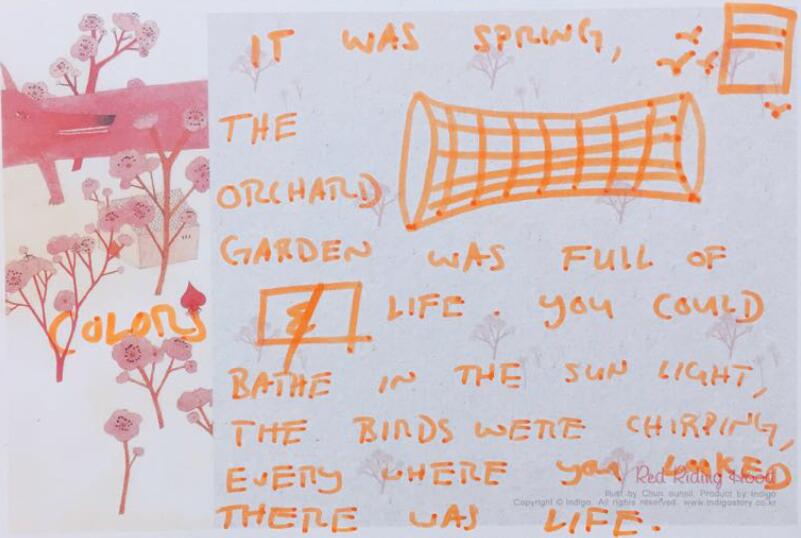 IT WAS SPRING,
THE
ORCHARD
GARDEN WAS FULL OF
COLORS & LIFE. YOU COULD
BATHE IN THE SUN LIGHT,
THE BIRDS WERE CHIRPING,
EVERY WHERE YOU LOOKED
Red Riding Hood
Illust by Chun eunsil. Product by Indigo
Copyright © Indigo. All rights reserved. www.indigostory.co.kr
THERE WAS LIFE.